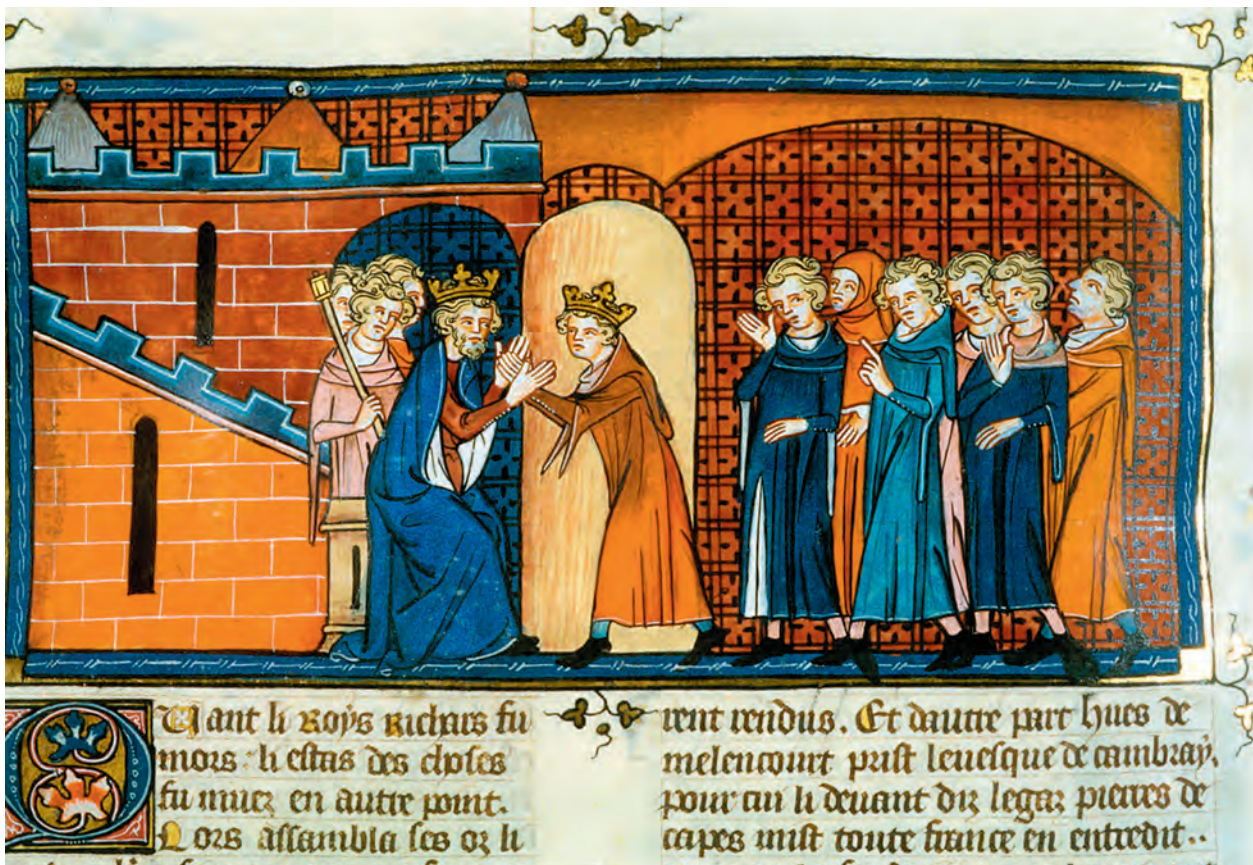 Quant li Roys Richars fu
mors . li estas des choses
fu muez en autre point.
Lors assambla ses oz li
rent rendus. Et dautre part hues de
melencourt prist leuesque de cambray.
pour cui li deuant diz legaz pierres de
capes mist toute france en entredit..